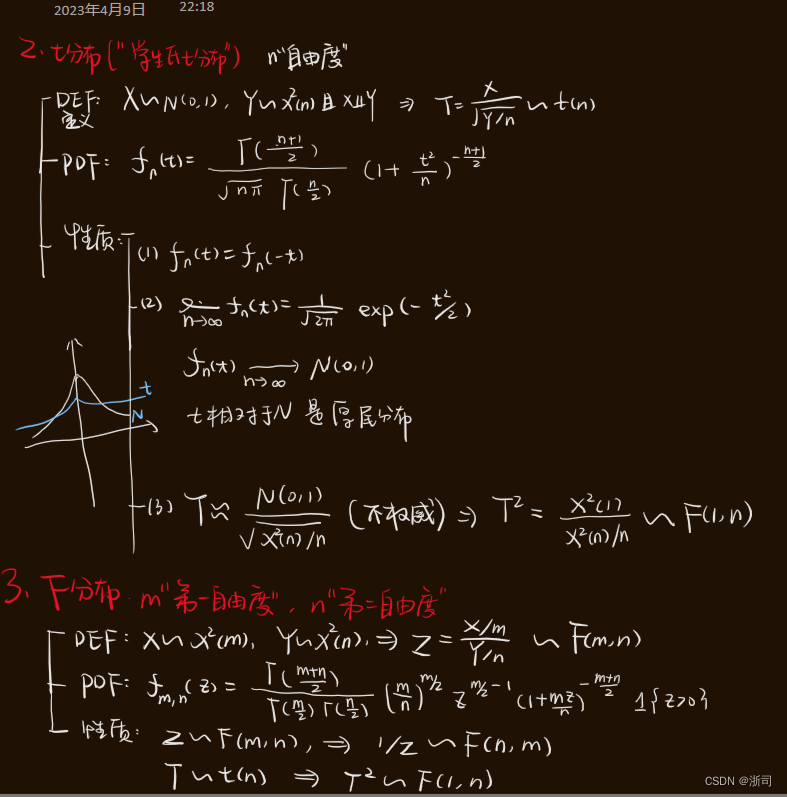 2023年4月9日 22:18
2. t分布("学生氏t分布") n"自由度"
DEF: X∽N(0,1), Y∽χ²(n)且X⫫Y ⇒ T=X/√(Y/n) ∽ t(n)
定义
PDF: fₙ(t)= Γ((n+1)/2) / (√(nπ) Γ(n/2)) (1+ t²/n)^(-(n+1)/2)
性质:
(1) fₙ(t)=fₙ(-t)
(2) lim n→∞ fₙ(t)= 1/√(2π) exp(- t²/2)
fₙ(t) ⟶ n→∞ N(0,1)
t
N
t相对于N是厚尾分布
(3) T≈ N(0,1)/√(χ²(n)/n) (不权威) ⇒ T² = χ²(1)/(χ²(n)/n) ∽ F(1,n)
3. F分布. m"第一自由度", n"第二自由度"
DEF: X∽χ²(m), Y∽χ²(n), ⇒ Z= (X/m)/(Y/n) ∽ F(m,n)
PDF: f_{m,n}(z) = Γ((m+n)/2) / (Γ(m/2) Γ(n/2)) (m/n)^(m/2) z^(m/2-1) (1+mz/n)^(-(m+n)/2) 1{z>0}
性质: Z∽F(m,n), ⇒ 1/Z ∽ F(n,m)
T∽t(n) ⇒ T² ∽ F(1,n)
CSDN @浙司